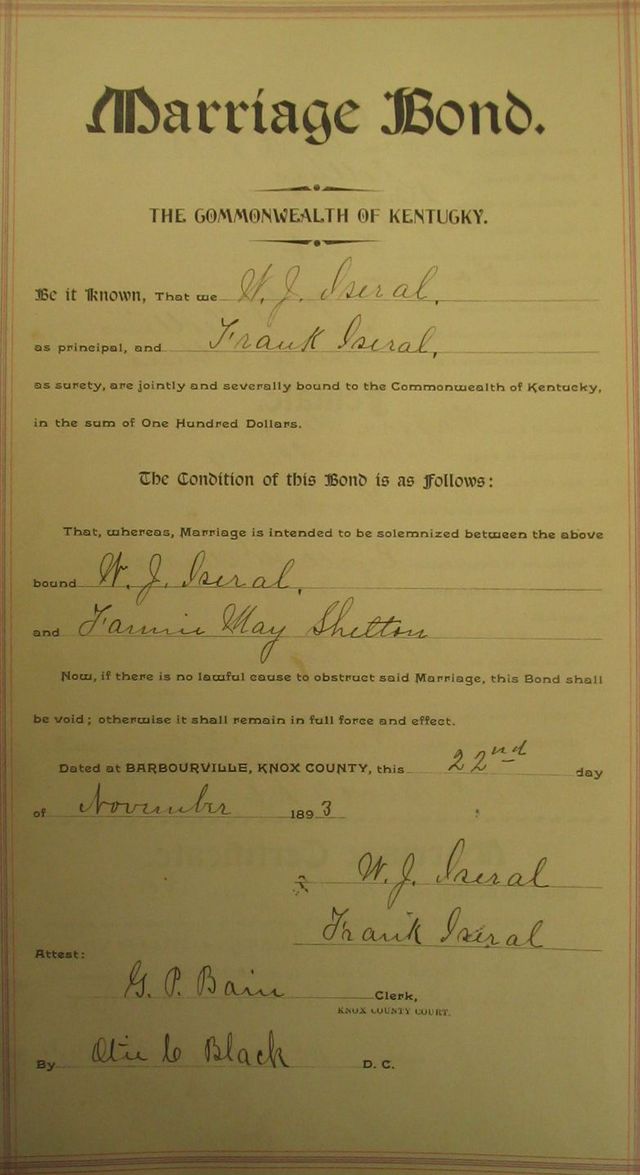 Marriage Bond.
THE COMMONWEALTH OF KENTUCKY.
Be it Known, That we W. J. Iseral,
as principal, and Frank Iseral,
as surety, are jointly and severally bound to the Commonwealth of Kentucky,
in the sum of One Hundred Dollars.
The Condition of this Bond is as Follows:
That, whereas, Marriage is intended to be solemnized between the above
bound W. J. Iseral,
and Fannie May Shelton
Now, if there is no lawful cause to obstruct said Marriage, this Bond shall
be void; otherwise it shall remain in full force and effect.
Dated at BARBOURVILLE, KNOX COUNTY, this 22nd day
of November 1893
W. J. Iseral
Frank Iseral
Attest:
G. P. Bain Clerk,
KNOX COUNTY COURT.
By Black D. C.